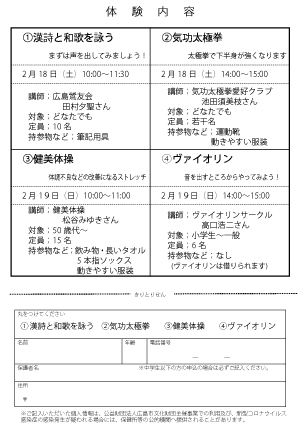 体 験 内 容
①漢詩と和歌を詠う
まずは声を出してみましょう！
2月18日（土）10:00～11:30
講師：広島鶯友会
田村夕聖さん
対象：どなたでも
定員：10名
持参物など：筆記用具
②気功太極拳
太極拳で下半身が強くなります
2月18日（土）14:00～15:00
講師：気功太極拳愛好クラブ
池田須美枝さん
対象：どなたでも
定員：若干名
持参物など：運動靴
動きやすい服装
③健美体操
体調不良などの改善になるストレッチ
2月19日（日）10:00～11:00
講師：健美体操
松谷みゆきさん
対象：50歳代～
定員：15名
持参物など：飲み物・長いタオル
5本指ソックス
動きやすい服装
④ヴァイオリン
音を出すところからやってみよう！
2月19日（日）14:00～15:00
講師：ヴァイオリンサークル
高口浩二さん
対象：小学生～一般
定員：6名
持参物など：なし
（ヴァイオリンは借りられます）
きりとりせん
丸をつけてください
①漢詩と和歌を詠う ②気功太極拳 ③健美体操 ④ヴァイオリン
名前 年齢 電話番号
― ―
保護者名 ※中学生以下の方の申込の場合は必ずご記入ください。
住所
〒
※ご記入いただいた個人情報は、公益財団法人広島市文化財団主催事業での利用及び、新型コロナウイルス
感染症の感染発生が疑われる場合には、保健所等の公的機関へ提供されることがあります。